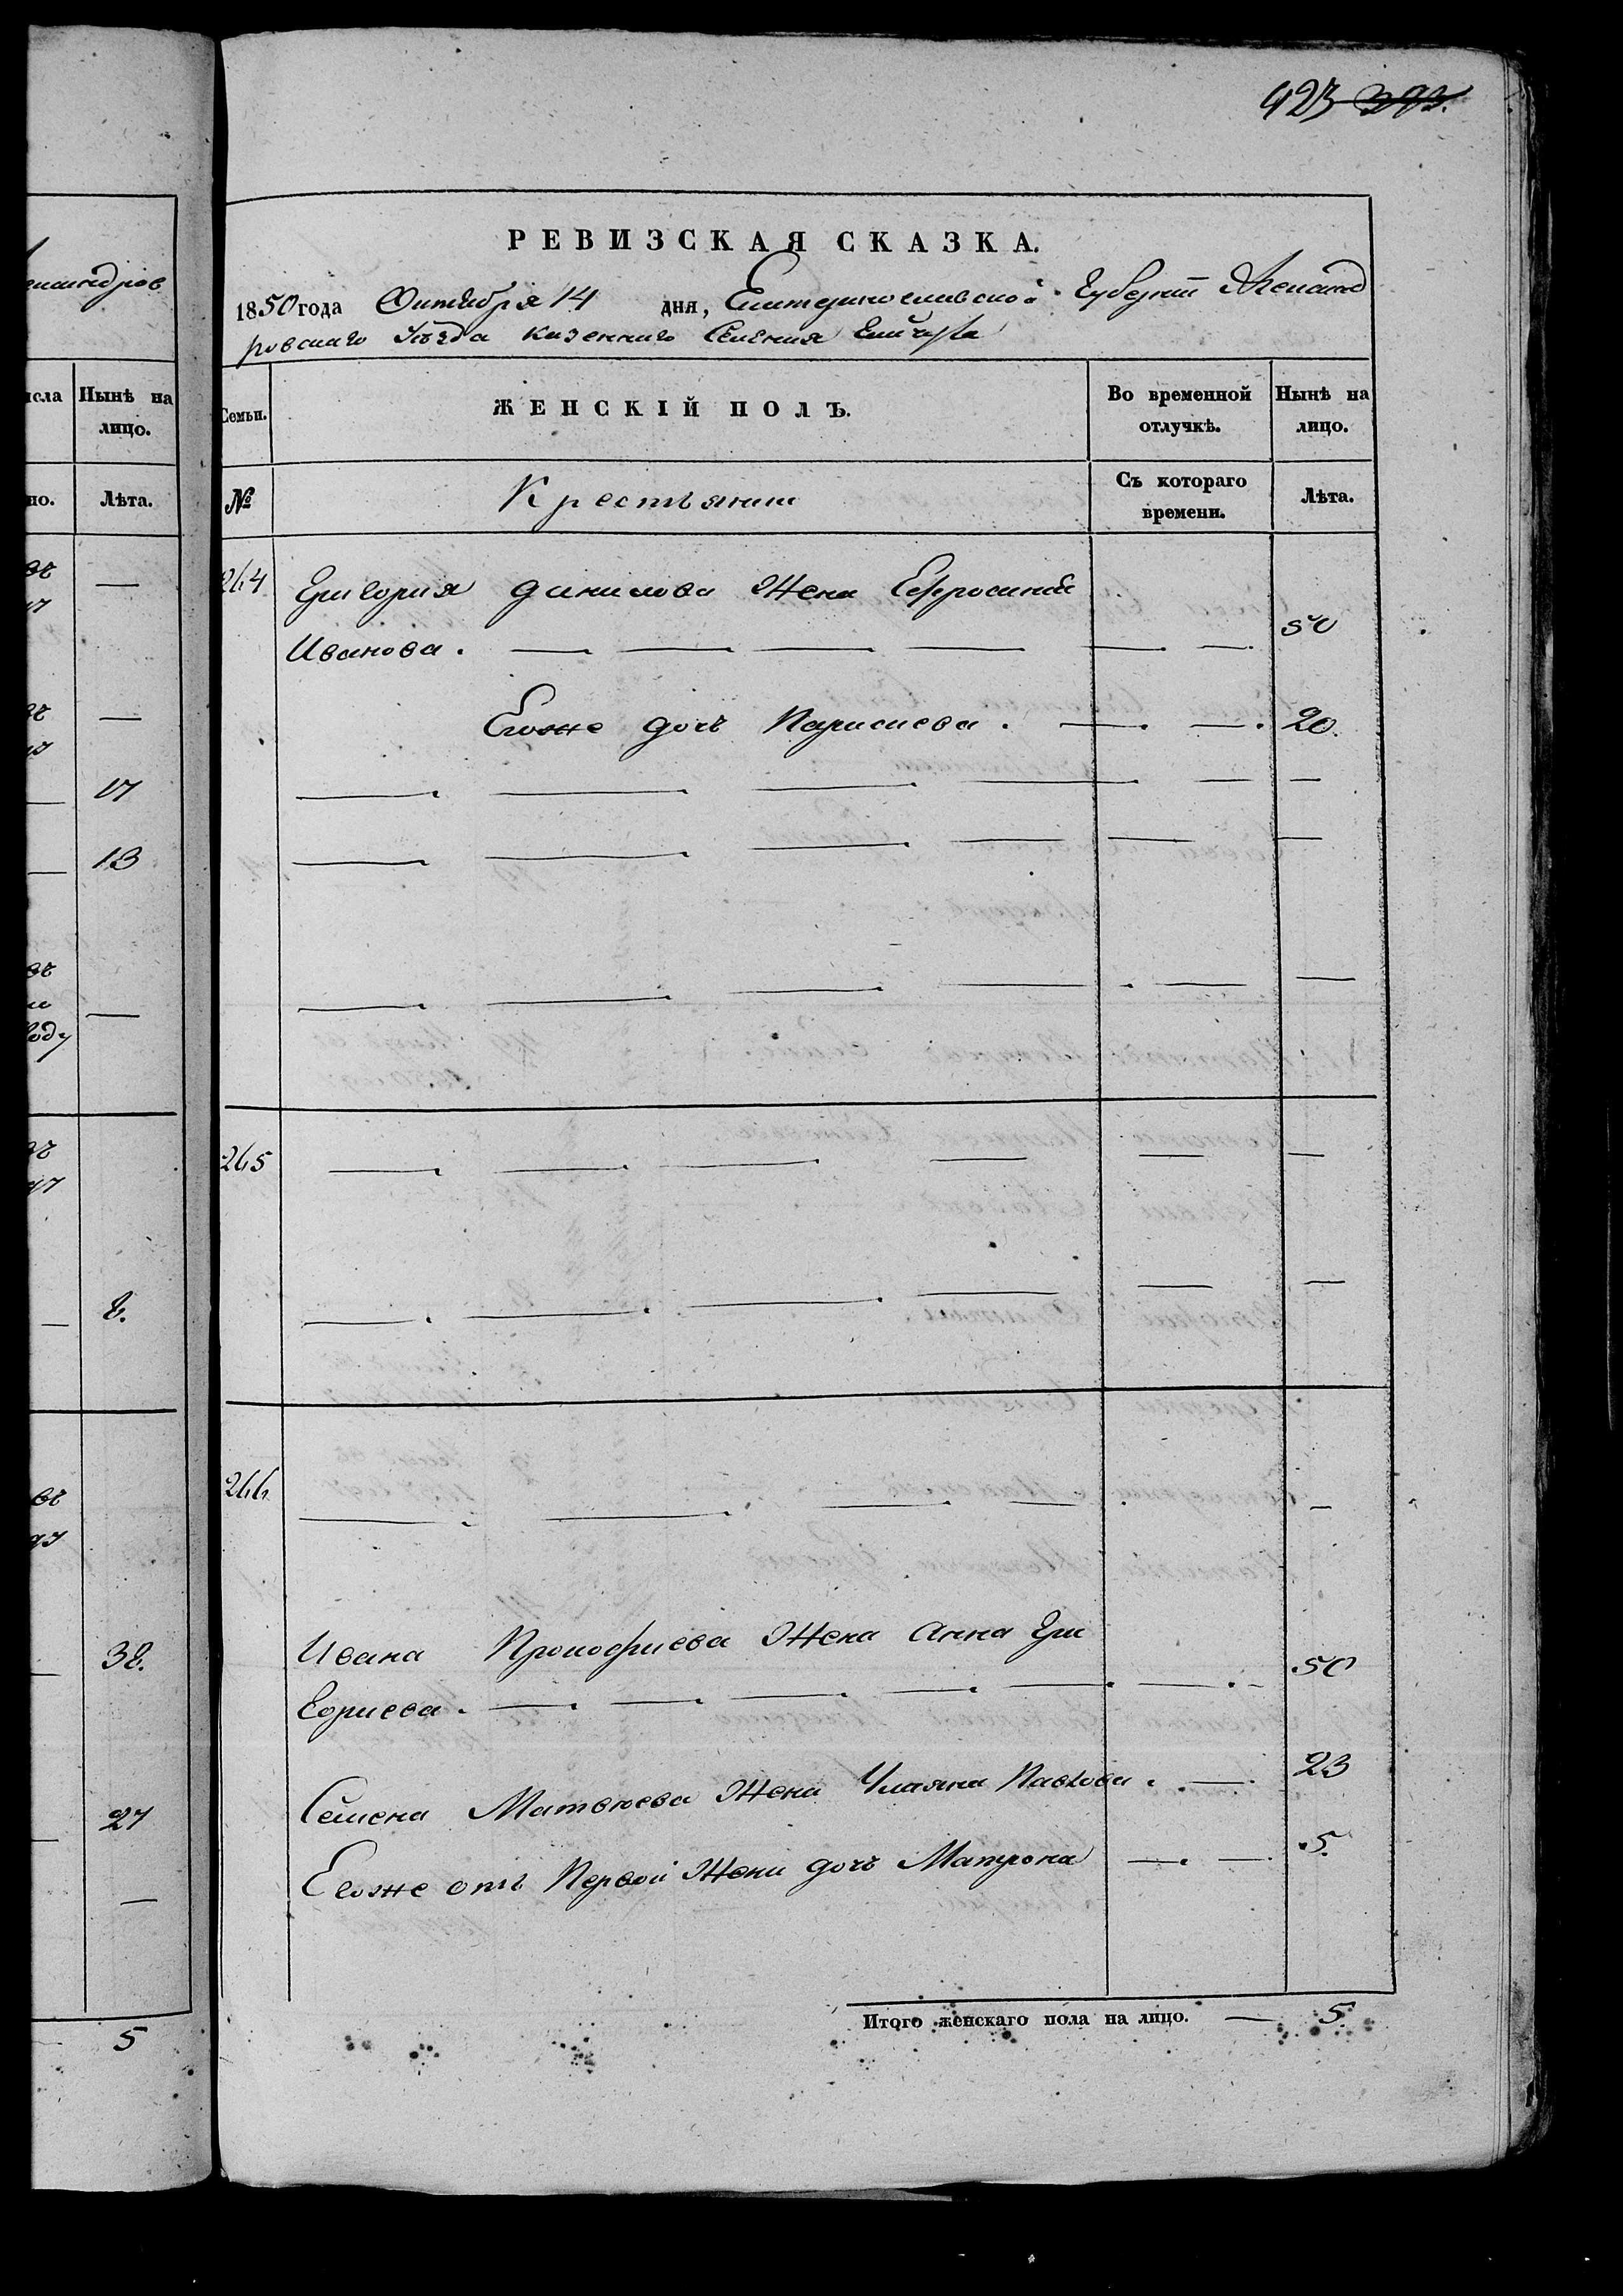 423 393.
ександров
исла Нынѣ на лицо.
но. Лѣта.
—
—
17
13
оду —
8.
38.
27
—
5
РЕВИЗСКАЯ СКАЗКА.
1850 года Октября 14 дня, Екатеринославской Губернии Александ
ровского Уѣзда казенного Селения
Семьи. ЖЕНСКІЙ ПОЛЪ. Во временной отлучкѣ. Нынѣ на лицо.
№ Крестьяне Съ котораго времени. Лѣта.
264 Григория Данилова Жена Ефросиния
Иванова. — — — — — — 50
Егоже дочь — — 20.
— — — — — —
— — — — — —
— — — — — —
265 — — — — — —
— — — — — —
266 — — — — —
Ивана Прокофиева Жена Анна Гри
гориева. — — — — — — 50
Семена Матвеева Жена Улаяна Павлова. — 23
Егоже отъ Первой Жены дочь Матрона — — 5.
Итого женскаго пола на лицо. — 5.